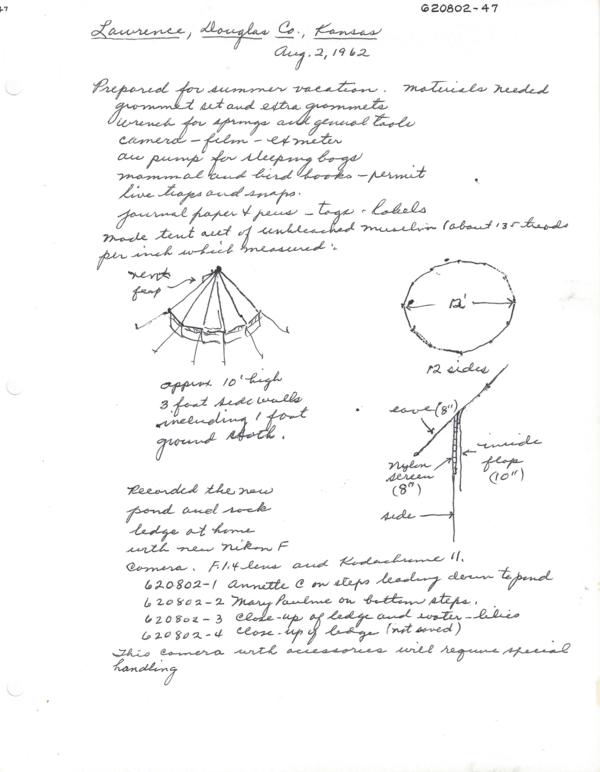 47
620802-47
Lawrence, Douglas Co., Kansas
Aug. 2, 1962
Prepared for summer vacation. Materials needed
grommet set and extra grommets
wrench for springs and general tools
camera - film - ex meter
air pump for sleeping bags
mammal and bird books - permit
live traps and snaps.
journal paper & pens - tags - labels
Made tent out of unbleached muselin (about 135 treads
per inch which measured:
vent
flap
approx. 10' high
3 foot side walls
including 1 foot
ground cloth.
12'
12 sides
eave (8")
nylon
screen
(8")
inside
flap
(10")
side
Recorded the new
pond and rock
ledge at home
with new Nikon F
Camera. F.1.4 lens and Kodachrome II.
620802-1 Annette C on steps leading down to pond
620802-2 Mary Pauline on bottom steps.
620802-3 Close-up of ledge and water-lilies
620802-4 Close-up of ledge (not saved)
This camera with accessories will require special
handling